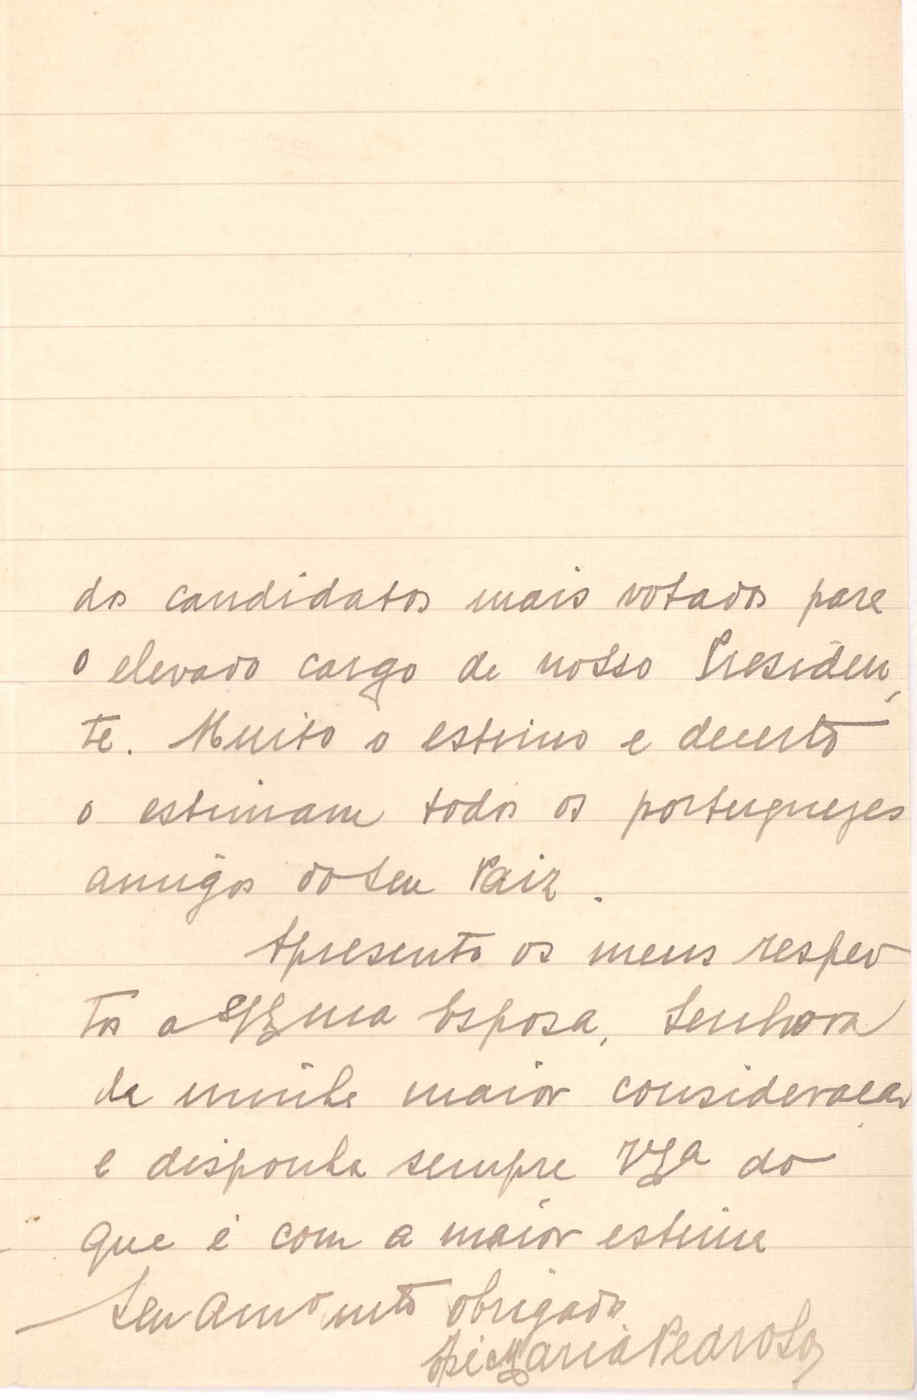 dos candidatos mais votados para
o elevado cargo de nosso Presiden
te. Muito o estimo e decerto
o estimam todos os portuguezes
amigos do seu Paiz.
Apresento os meus respei
tos a Exma Esposa, Senhora
da minha maior consideração
e disponha sempre VExa do
que é com a maior estima
Seu Amo mto obrigado
José Maria Pedroso